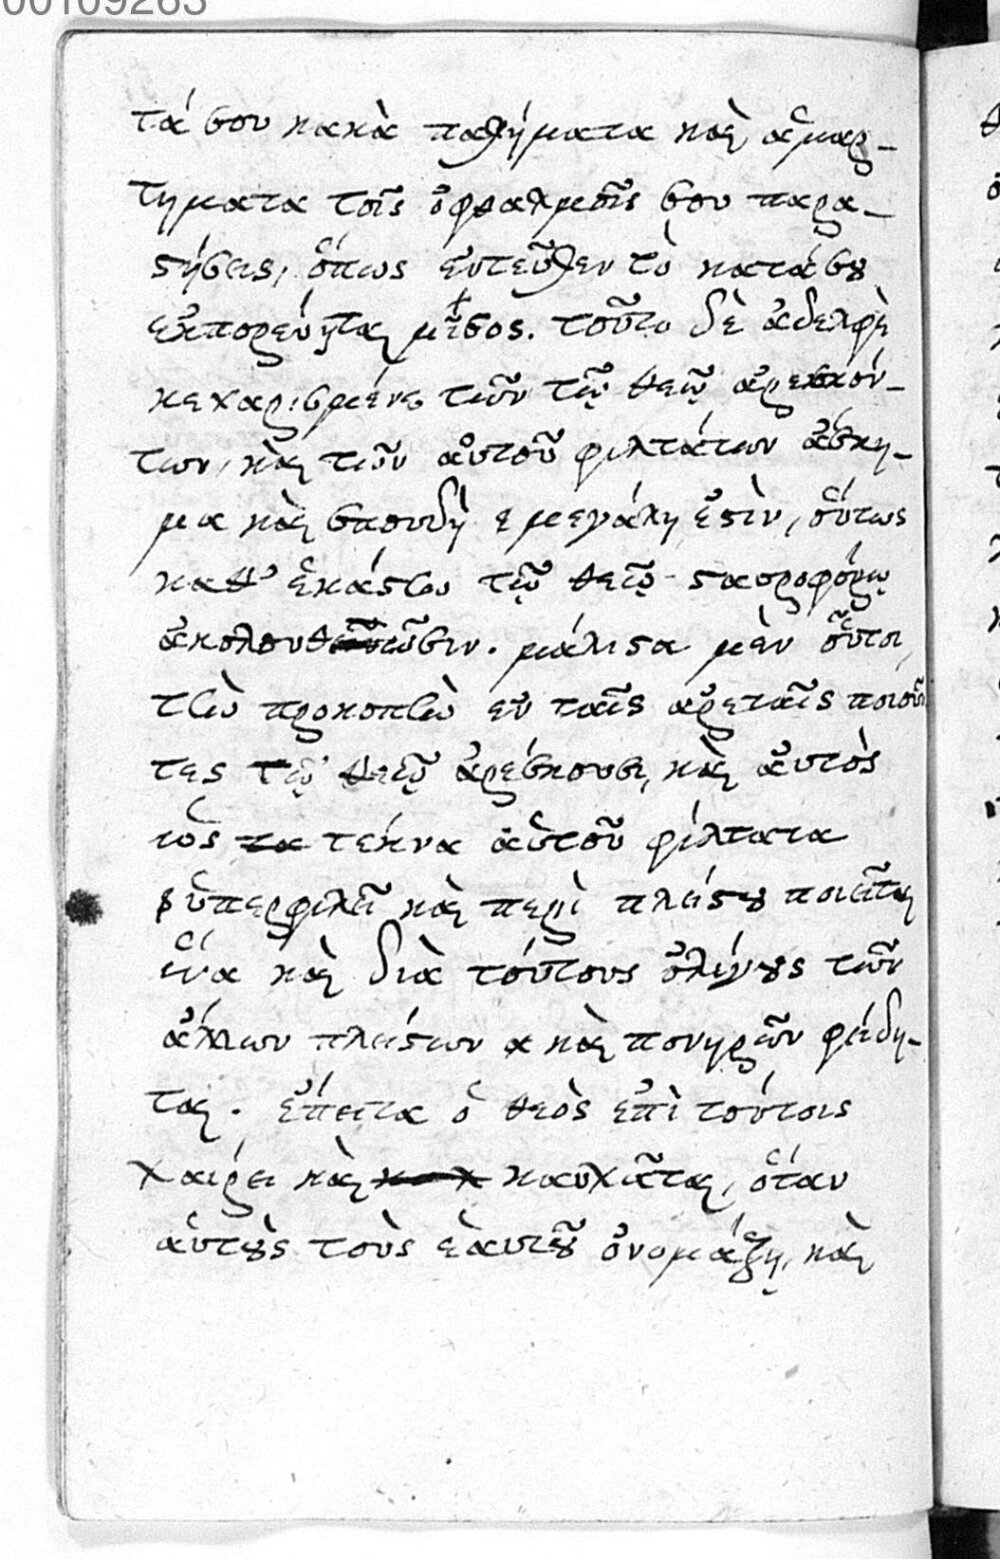 00109263
τά σου κακὰ παθήματα καὶ ἁμαρ-
τήματα τοῖς ὀφθαλμοῖς σου παρα-
στήσεις, ὅπως ἐντεῦθεν τὸ κατά σου
ἐκπορεύηται μῖσος. τοῦτο δὲ ἀδελφὲ
κεχαρισμένε τῶν τῷ θεῷ ἀρεσκόν-
των, καὶ τῶν αὐτοῦ φιλτάτων ἄσκη-
μα καὶ σπουδὴ μεγάλη ἐστὶν, οὕτως
καθ' ἑκάστην τῷ θεῷ σταυροφόρῳ
ἀκολουθῶσιν. μάλιστα μὲν οὗτοι,
τὴν προκοπὴν ἐν ταῖς ἀρεταῖς ποιοῦν
τες τῷ θεῷ ἀρέσκουσι, καὶ αὐτὸς
ὡς τέκνα αὐτοῦ φίλτατα
ὑπερφιλεῖ καὶ περὶ πλείστου ποιεῖται
ἵνα καὶ διὰ τούτους ὀλίγους τῶν
ἄλλων πλείστων καὶ πονηρῶν φείδη-
ται. ἔπειτα ὁ θεὸς ἐπὶ τούτοις
χαίρει καὶ καυχᾶται, ὅταν
αὐτοὺς τοὺς ἑαυτοῦ ὀνομάζῃ, καὶ